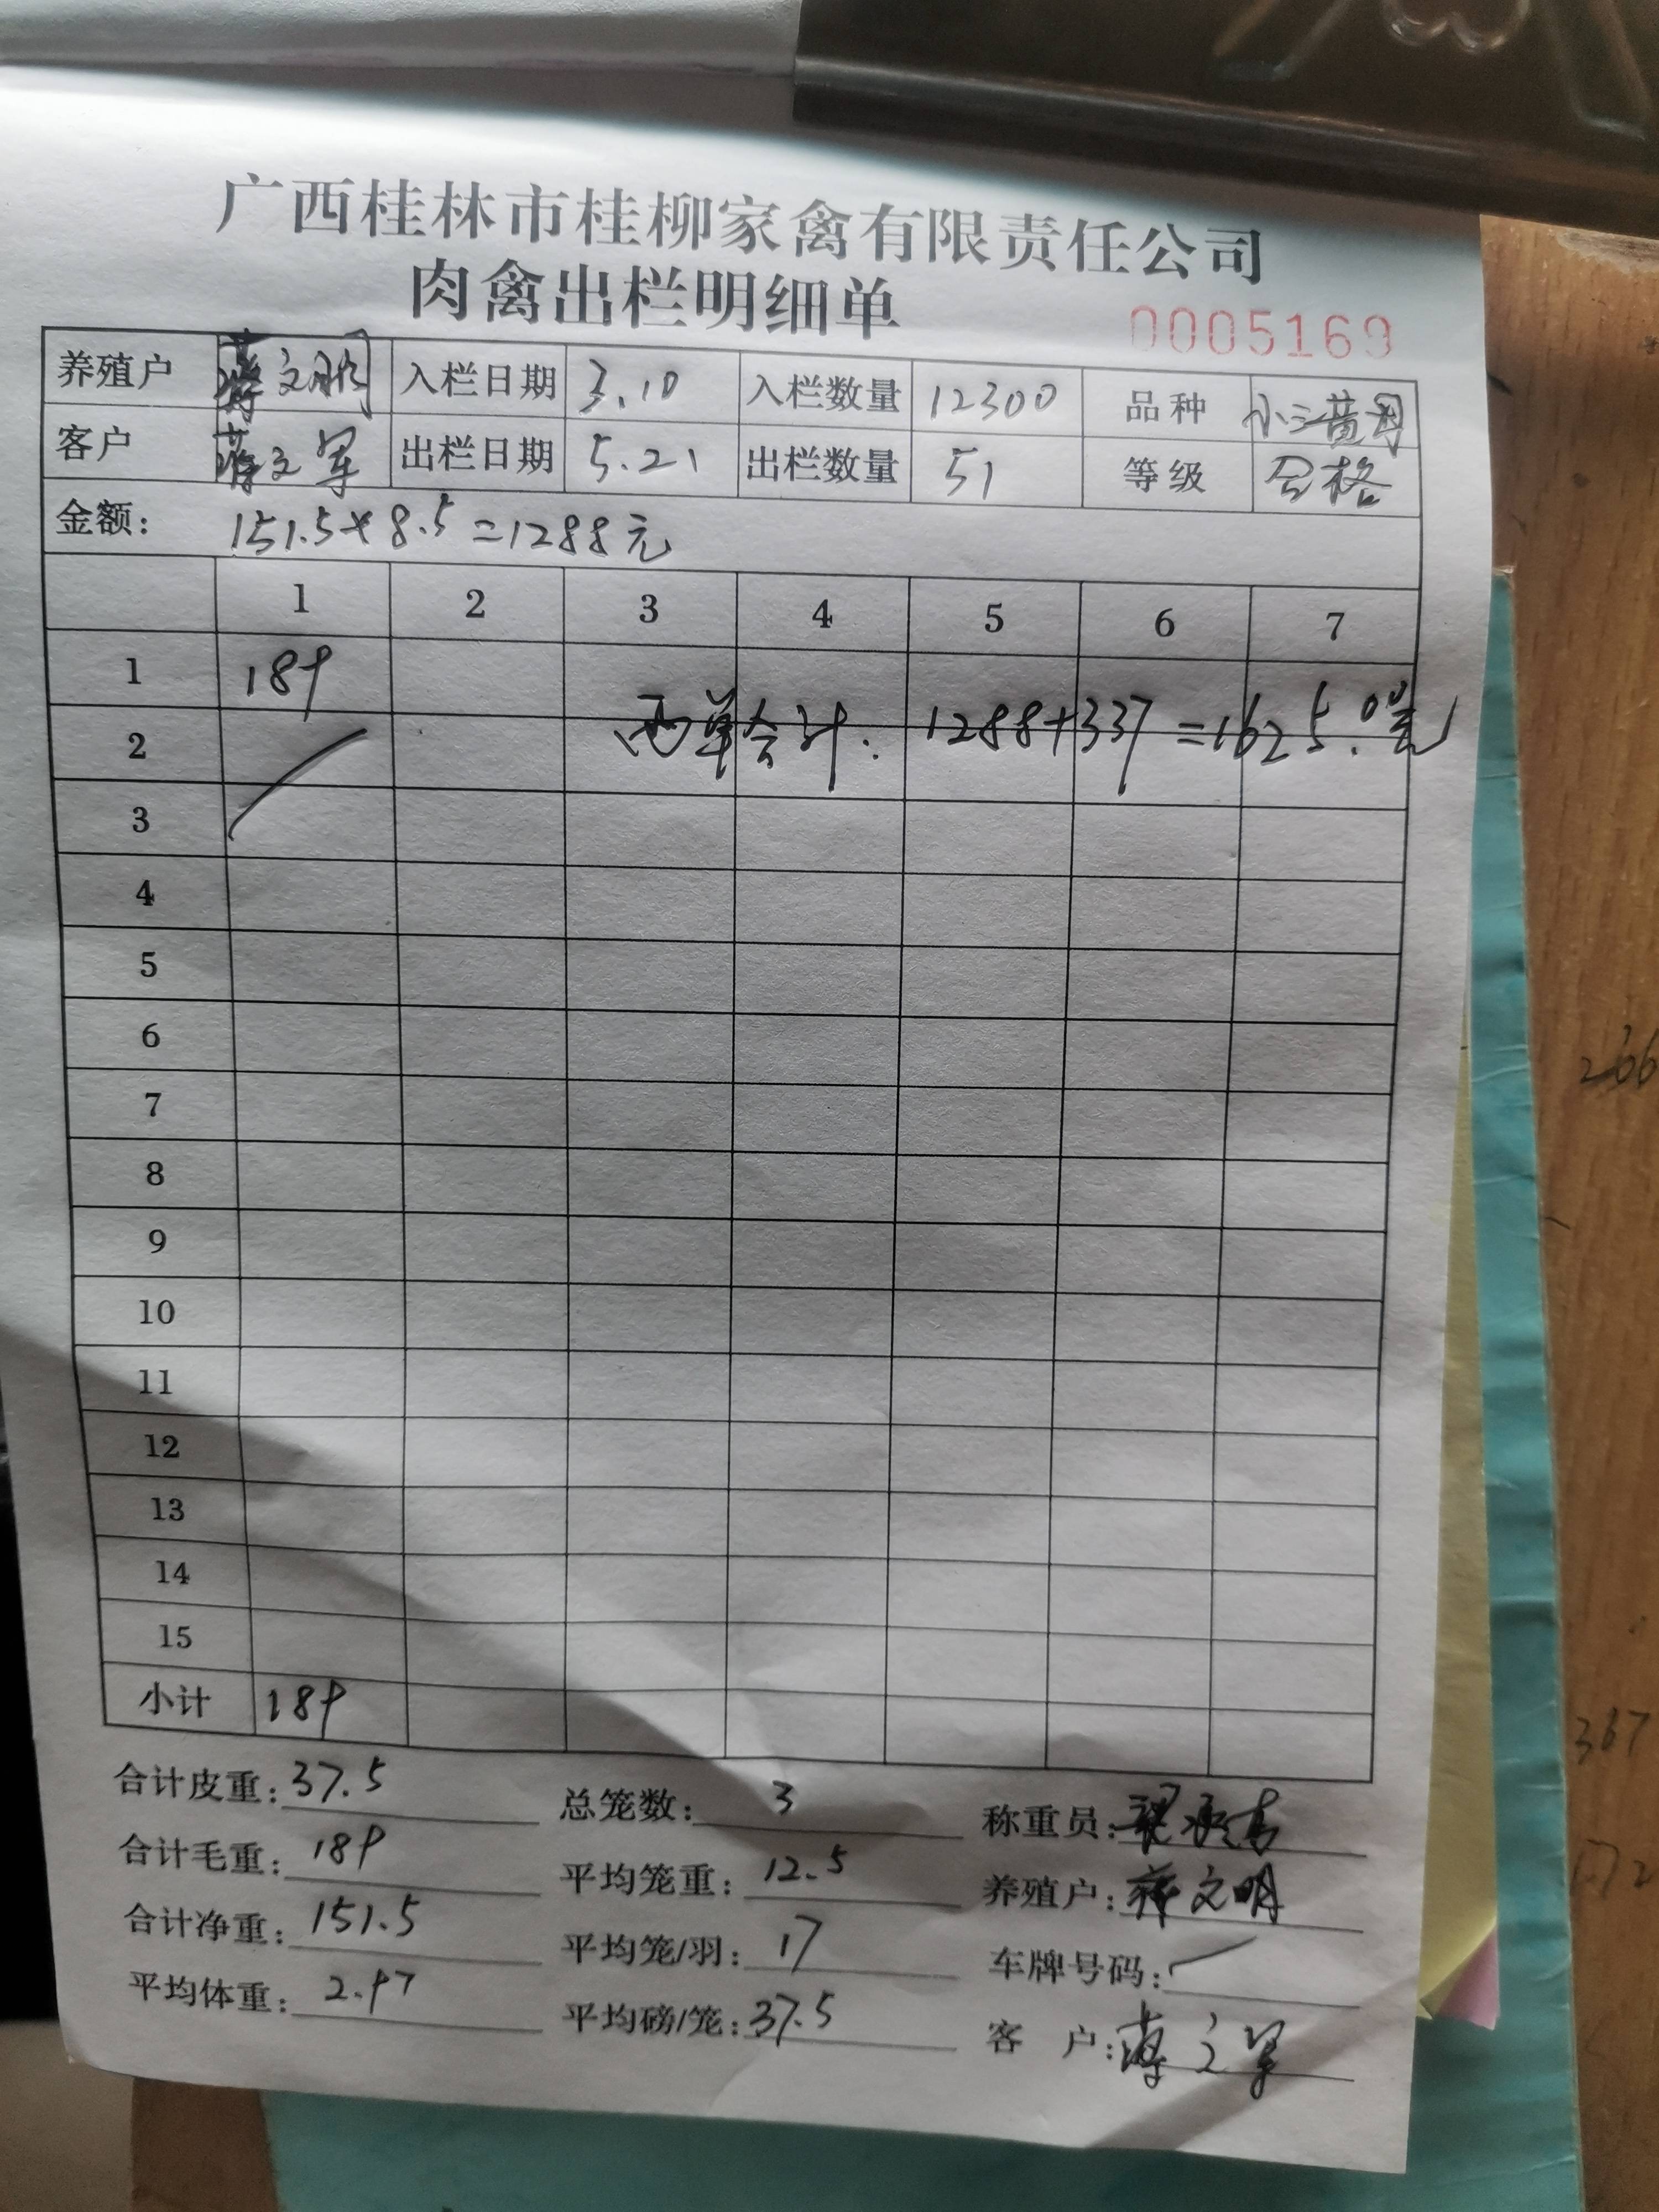 广西桂林市桂柳家禽有限责任公司
肉禽出栏明细单
0005169
养殖户 蒋文明 入栏日期 3.10 入栏数量 12300 品种 小三黄
客户 蒋文军 出栏日期 5.21 出栏数量 51 等级 合格
金额: 151.5×8.5=1288元
1 2 3 4 5 6 7
1 189
两单合计: 1288+337=1625.00元
2
3
4
5
6
7
8
9
10
11
12
13
14
15
小计 189
合计皮重: 37.5 总笼数: 3 称重员:
合计毛重: 189 平均笼重: 12.5 养殖户: 蒋文明
合计净重: 151.5 平均笼/羽: 17 车牌号码:
平均体重: 2.97 平均磅/笼: 37.5 客 户: 蒋文军
367